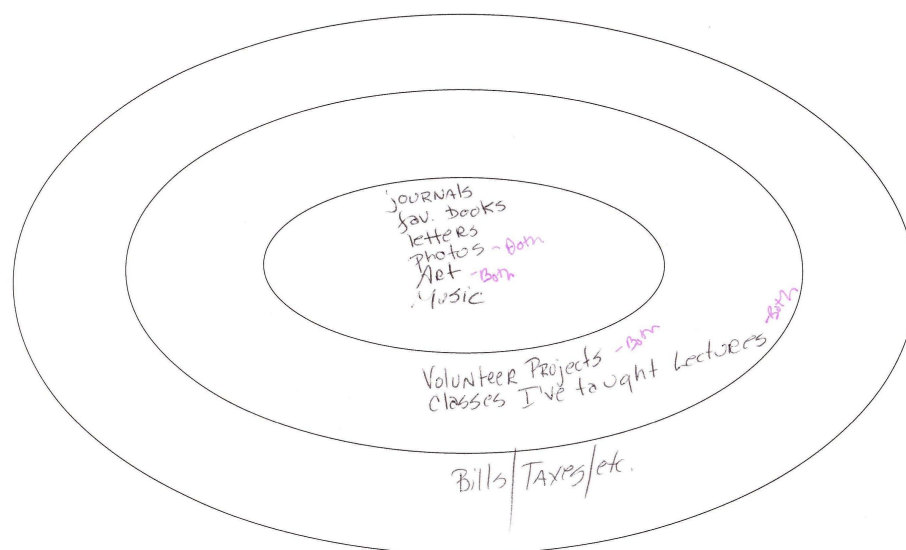 JOURNALS
fav. books
letters
Photos - Both
Art - Both
Music
Volunteer Projects - Both
Classes I've taught Lectures - Both
Bills/Taxes/etc.